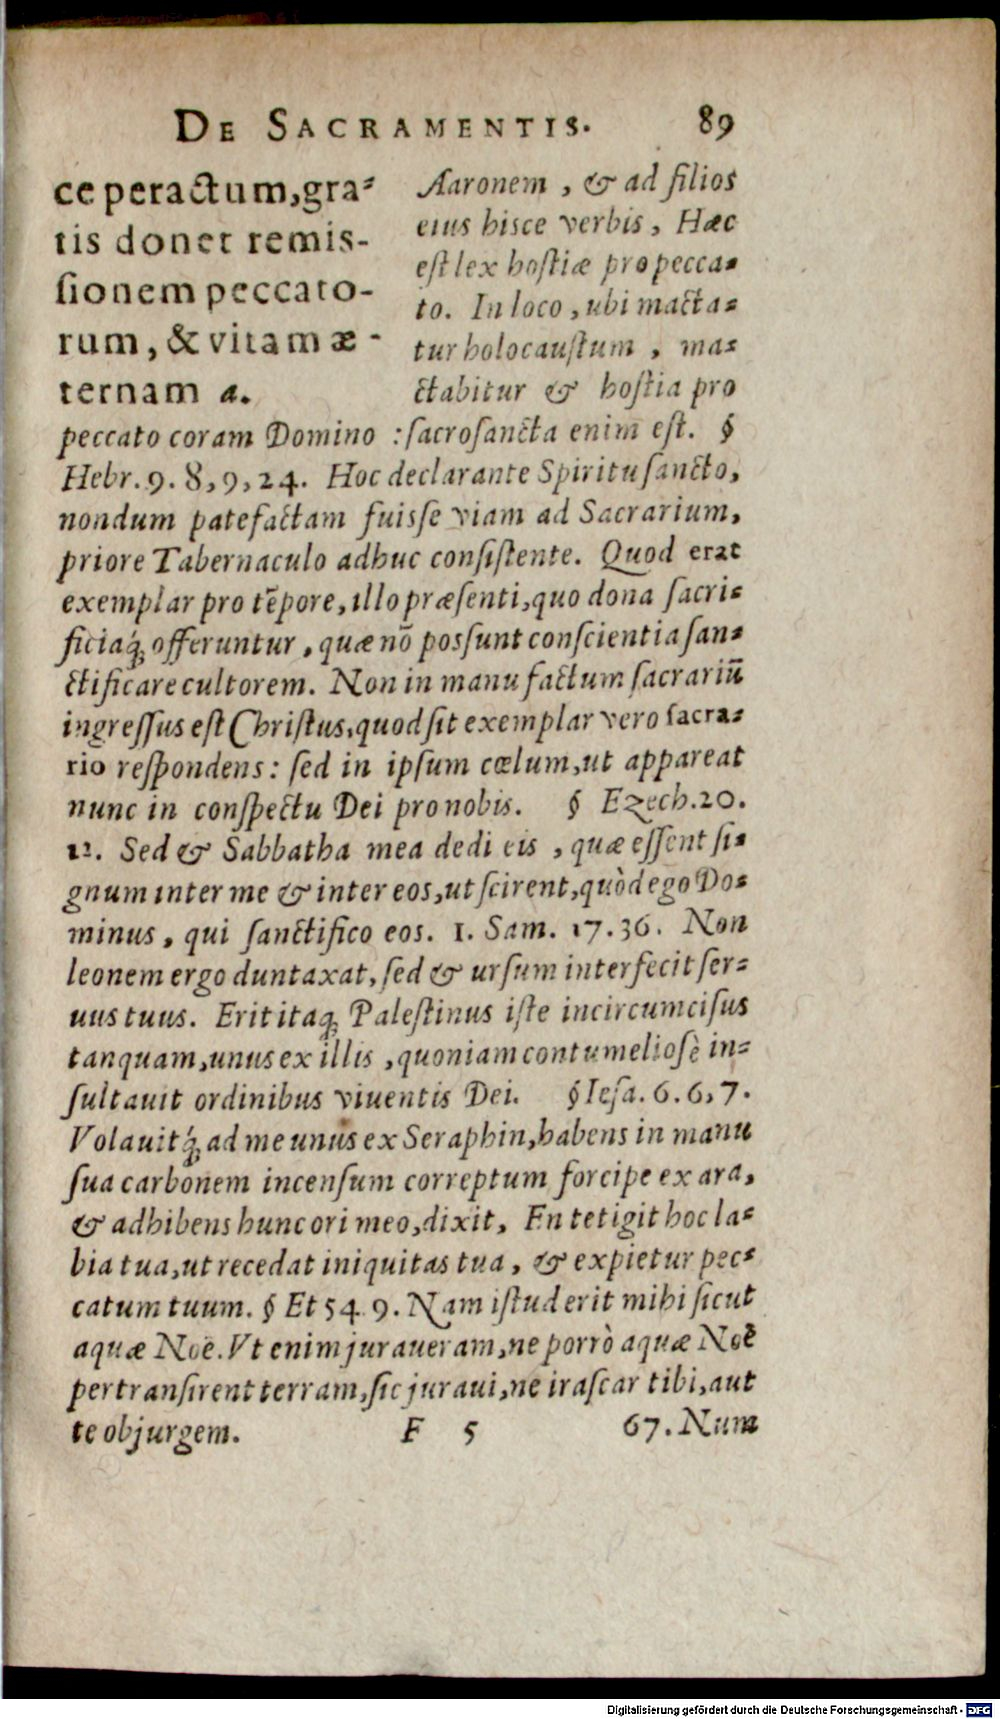 DE SACRAMENTIS. 89
ce peractum, gra-
tis donet remis-
sionem peccato-
rum, & vitam æ-
ternam a.
Aaronem, & ad filios
eius hisce verbis, Hæc
est lex hostiæ pro pecca-
to. In loco, ubi macta-
tur holocaustum, ma-
ctabitur & hostia pro
peccato coram Domino : sacrosancta enim est. §
Hebr. 9. 8, 9, 24. Hoc declarante Spiritu sancto,
nondum patefactam fuisse viam ad Sacrarium,
priore Tabernaculo adhuc consistente. Quod erat
exemplar pro tēpore, illo præsenti, quo dona sacri-
ficiaq́; offeruntur, quæ nō possunt conscientia san-
ctificare cultorem. Non in manu factum sacrariū
ingressus est Christus, quod sit exemplar vero sacra-
rio respondens: sed in ipsum cœlum, ut appareat
nunc in conspectu Dei pro nobis. § Ezech. 20.
12. Sed & Sabbatha mea dedi eis, quæ essent si-
gnum inter me & inter eos, ut scirent, quòd ego Do-
minus, qui sanctifico eos. 1. Sam. 17. 36. Non
leonem ergo duntaxat, sed & ursum interfecit ser-
uus tuus. Erit itaq; Palestinus iste incircumcisus
tanquam, unus ex illis, quoniam contumeliosè in-
sultauit ordinibus viuentis Dei. § Iesa. 6. 6, 7.
Volauitq́; ad me unus ex Seraphin, habens in manu
sua carbonem incensum correptum forcipe ex ara,
& adhibens hunc ori meo, dixit, En tetigit hoc la-
bia tua, ut recedat iniquitas tua, & expietur pec-
catum tuum. § Et 54. 9. Nam istud erit mihi sicut
aquæ Noë. Vt enim juraueram, ne porrò aquæ Noë
pertransirent terram, sic juraui, ne irascar tibi, aut
te objurgem. F 5 67. Num
Digitalisierung gefördert durch die Deutsche Forschungsgemeinschaft - DFG